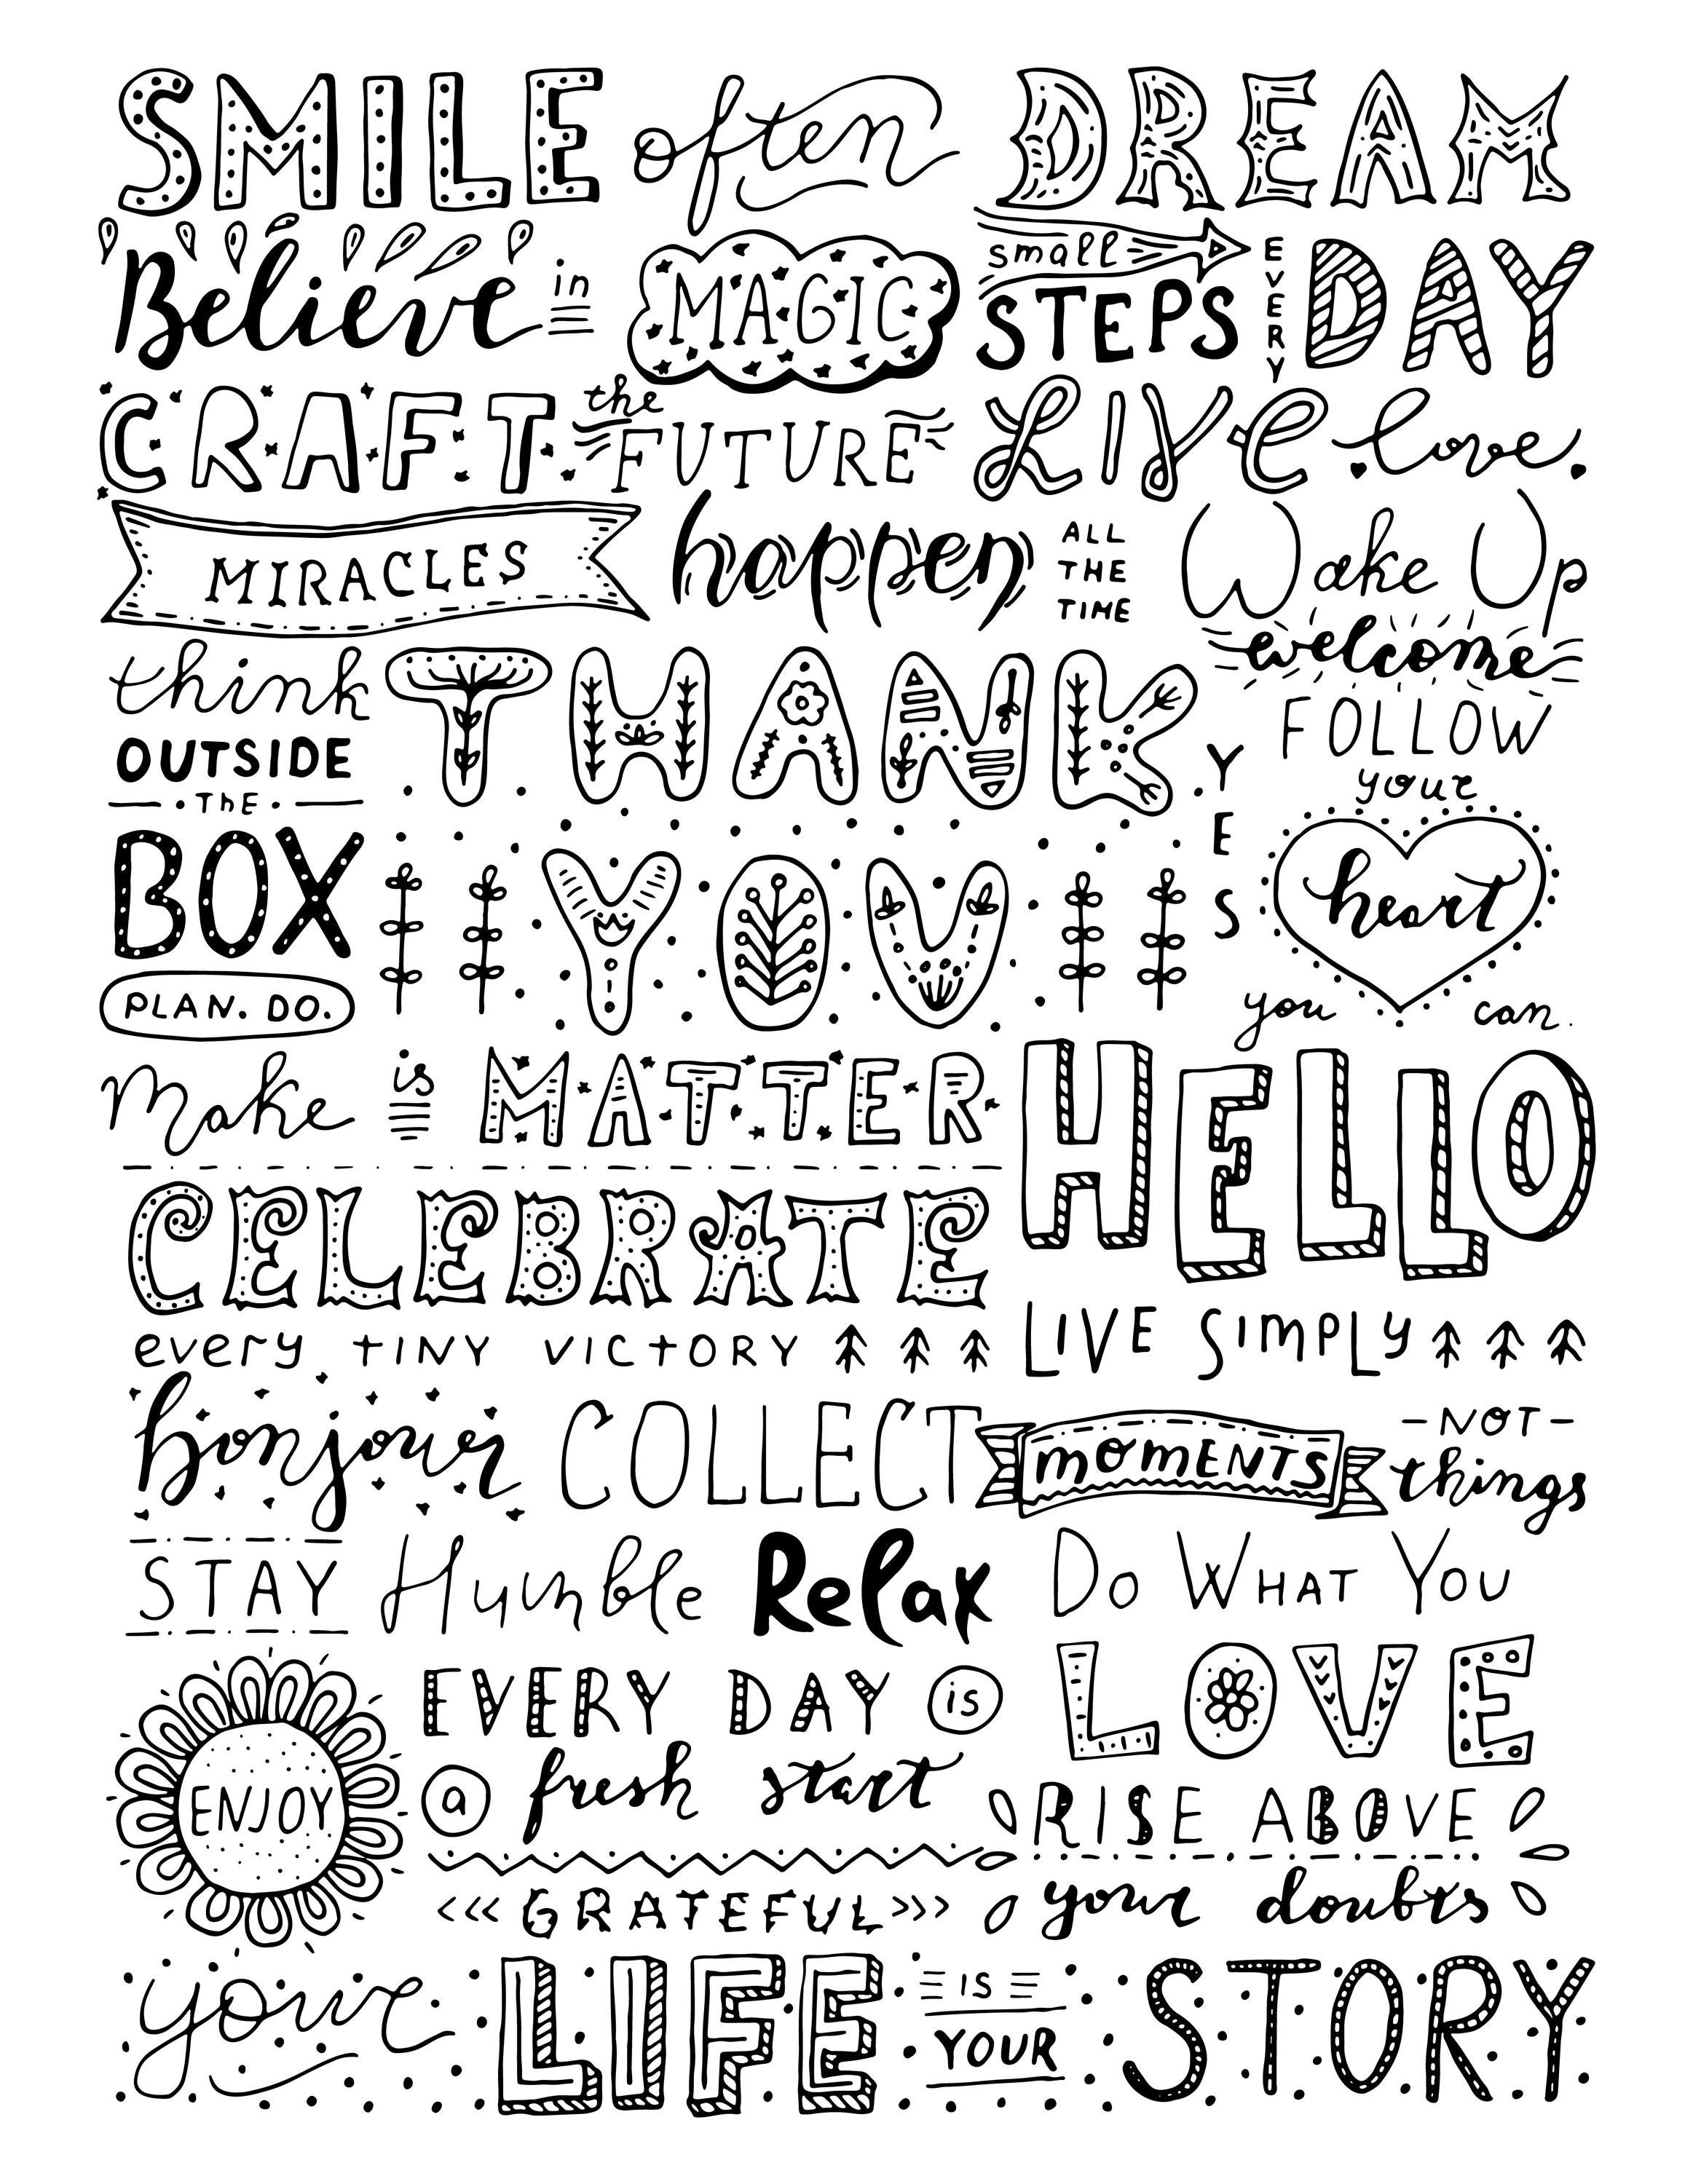 SMILE often
DREAM
Believe in MAGIC
small STEPS EVERY DAY
CRAFT the FUTURE
LIVE love.
MIRACLES happen ALL THE TIME
Wake Up
welcome
think
OUTSIDE
THE
BOX
THANK
YOU
YES
FOLLOW
your
heart
PLAN. DO.
you can
make is MATTER
HELLO
CELEBRATE
every TINY VICTORY
LIVE SIMPLY
bonjour
COLLECT MOMENTS
-NOT-
things
STAY Humble
Relax
DO WHAT YOU
LOVE
ENJOY
EVERY DAY is
a fresh start
RISE ABOVE
your doubts
<<< GRATEFUL >>>
your LIFE IS YOUR STORY